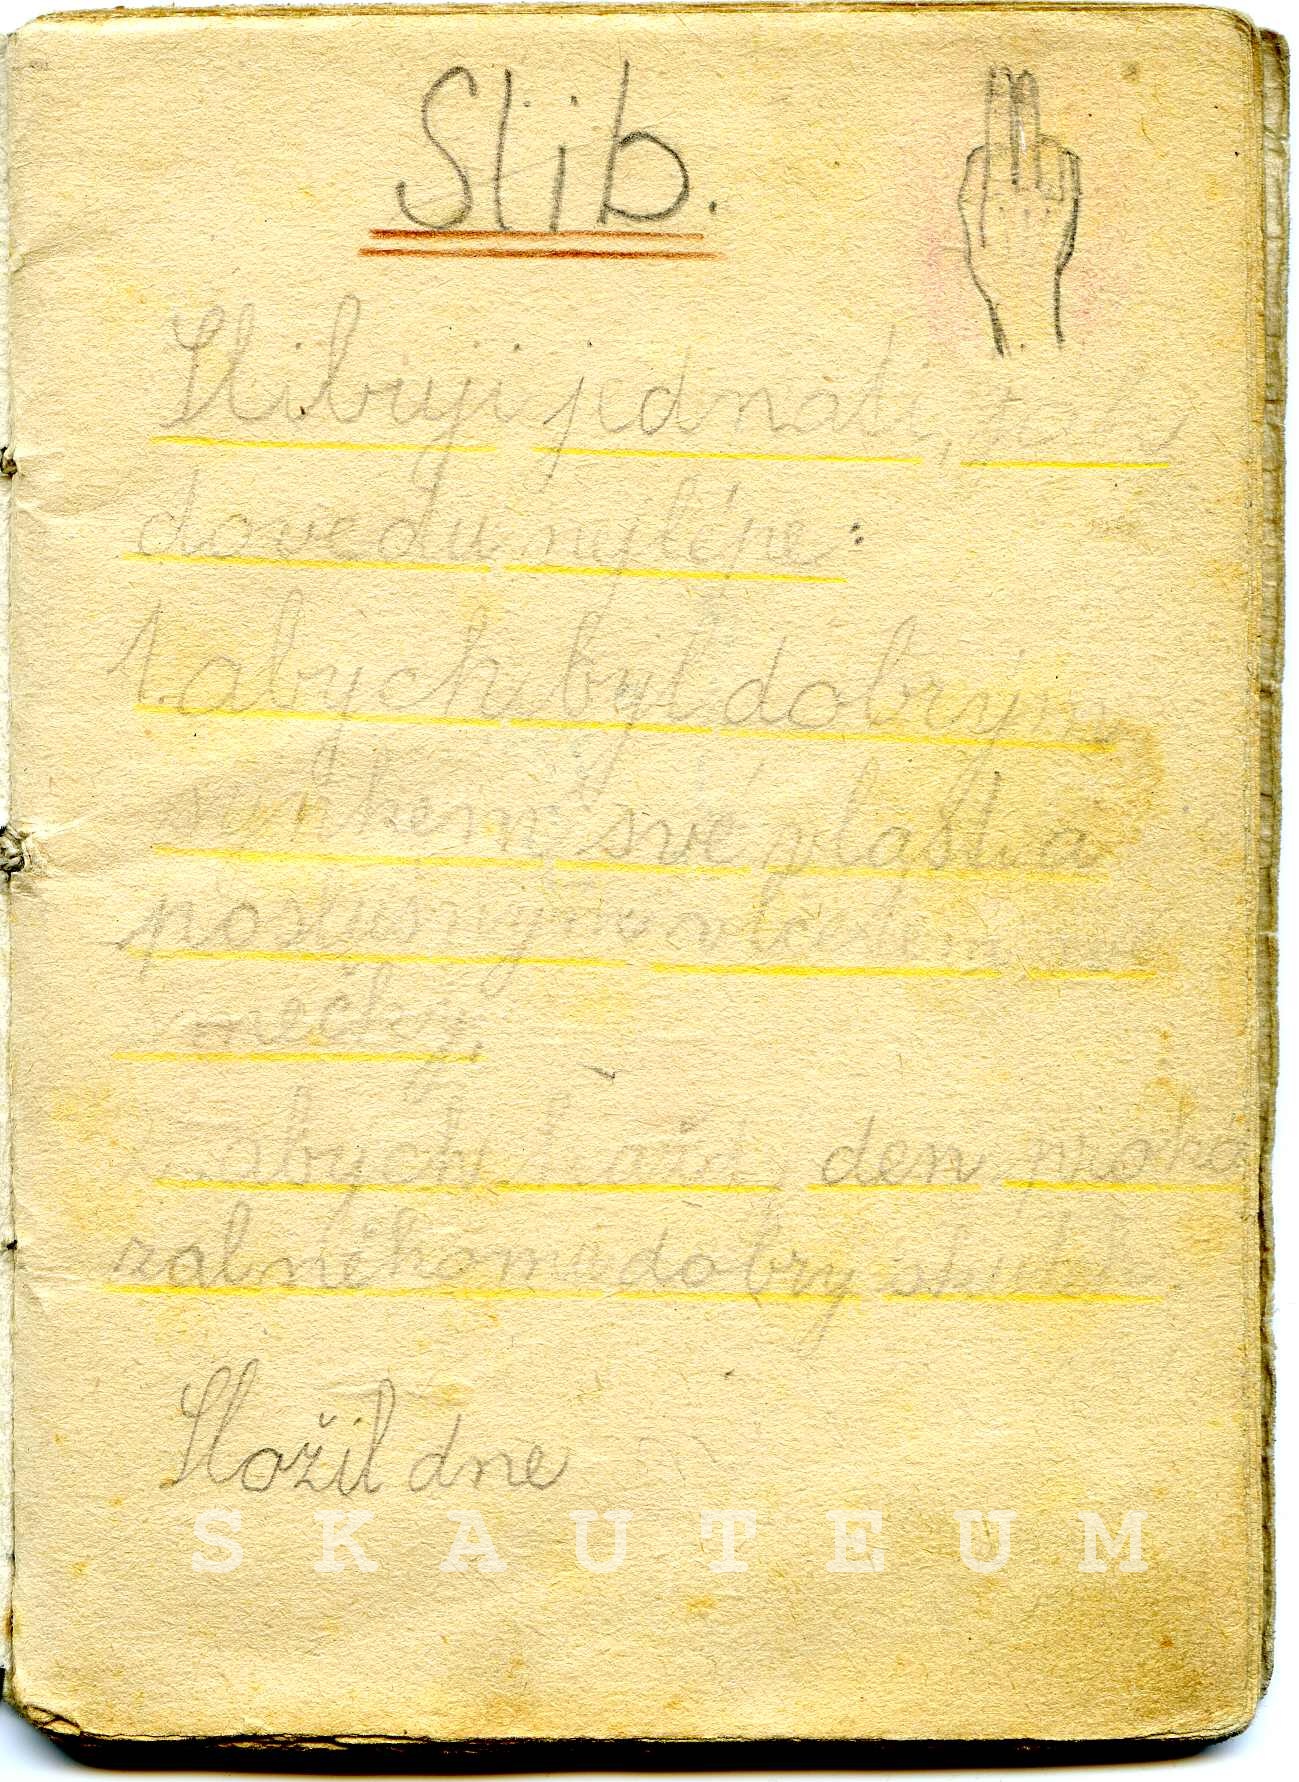 Slib.
Slibuji jednati, jak
dovedu nejlépe:
1. abych byl dobrým
synkem své vlasti a
poslušným vlčetem své
smečky,
abych každý den proká
zal někomu dobrý skutek.
Složil dne
SKAUTEUM